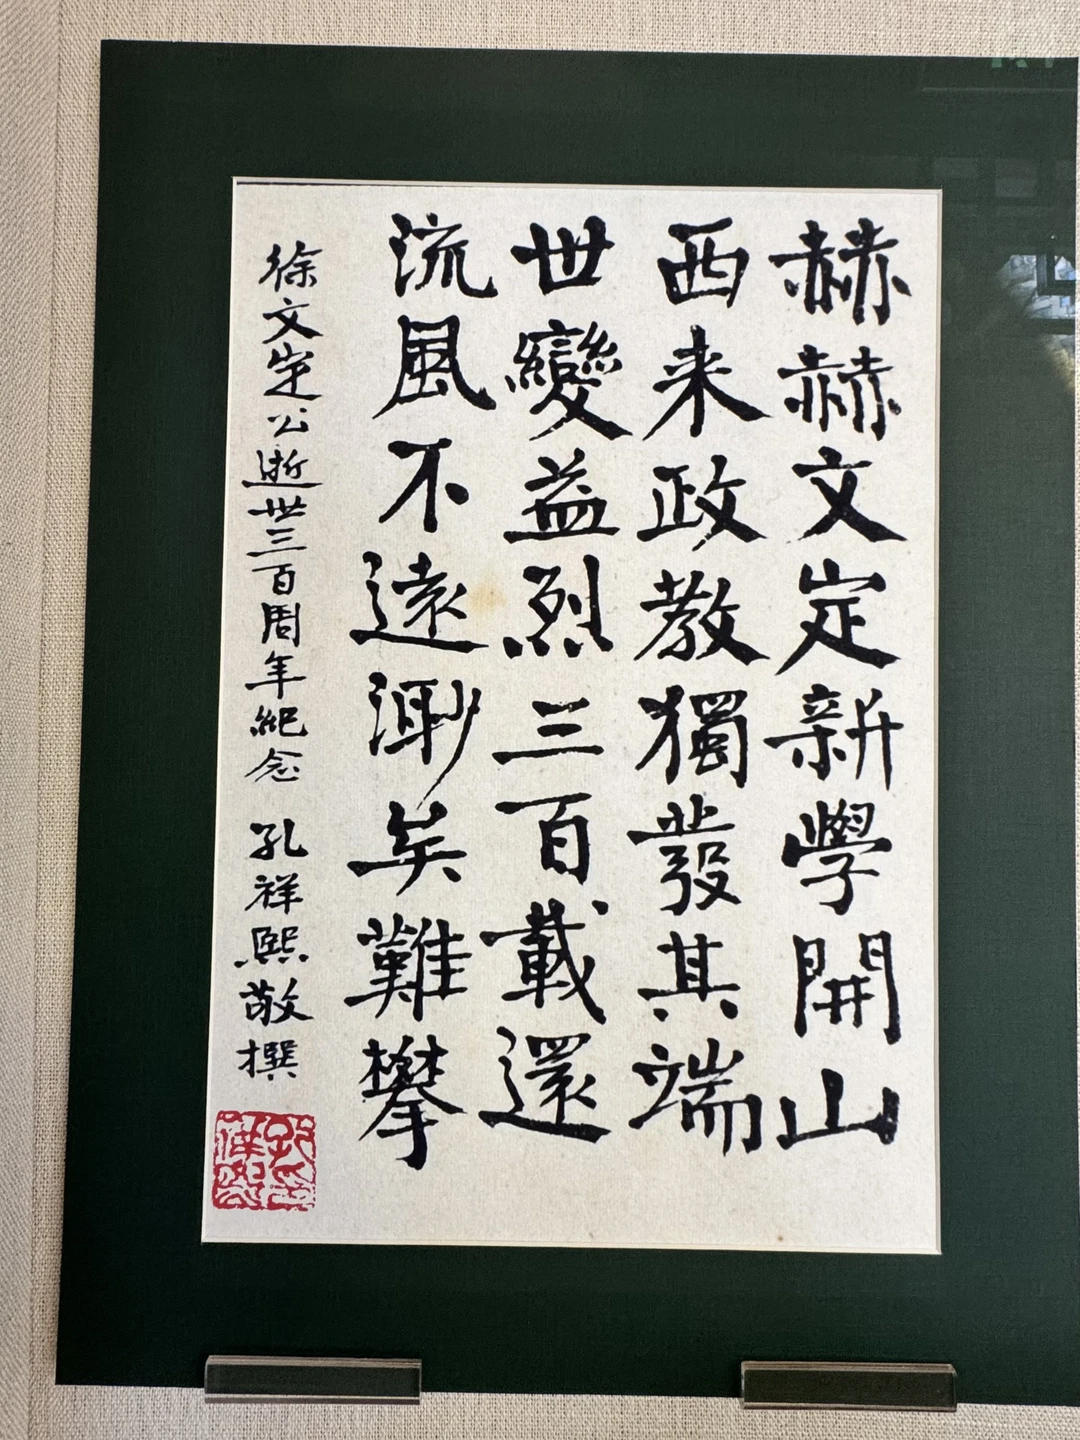 赫赫文定新學開山
西来政教獨發其端
世變益烈三百載還
流風不遠渺矣難攀
徐文定公逝世三百周年紀念 孔祥熙敬撰
孔祥熙印